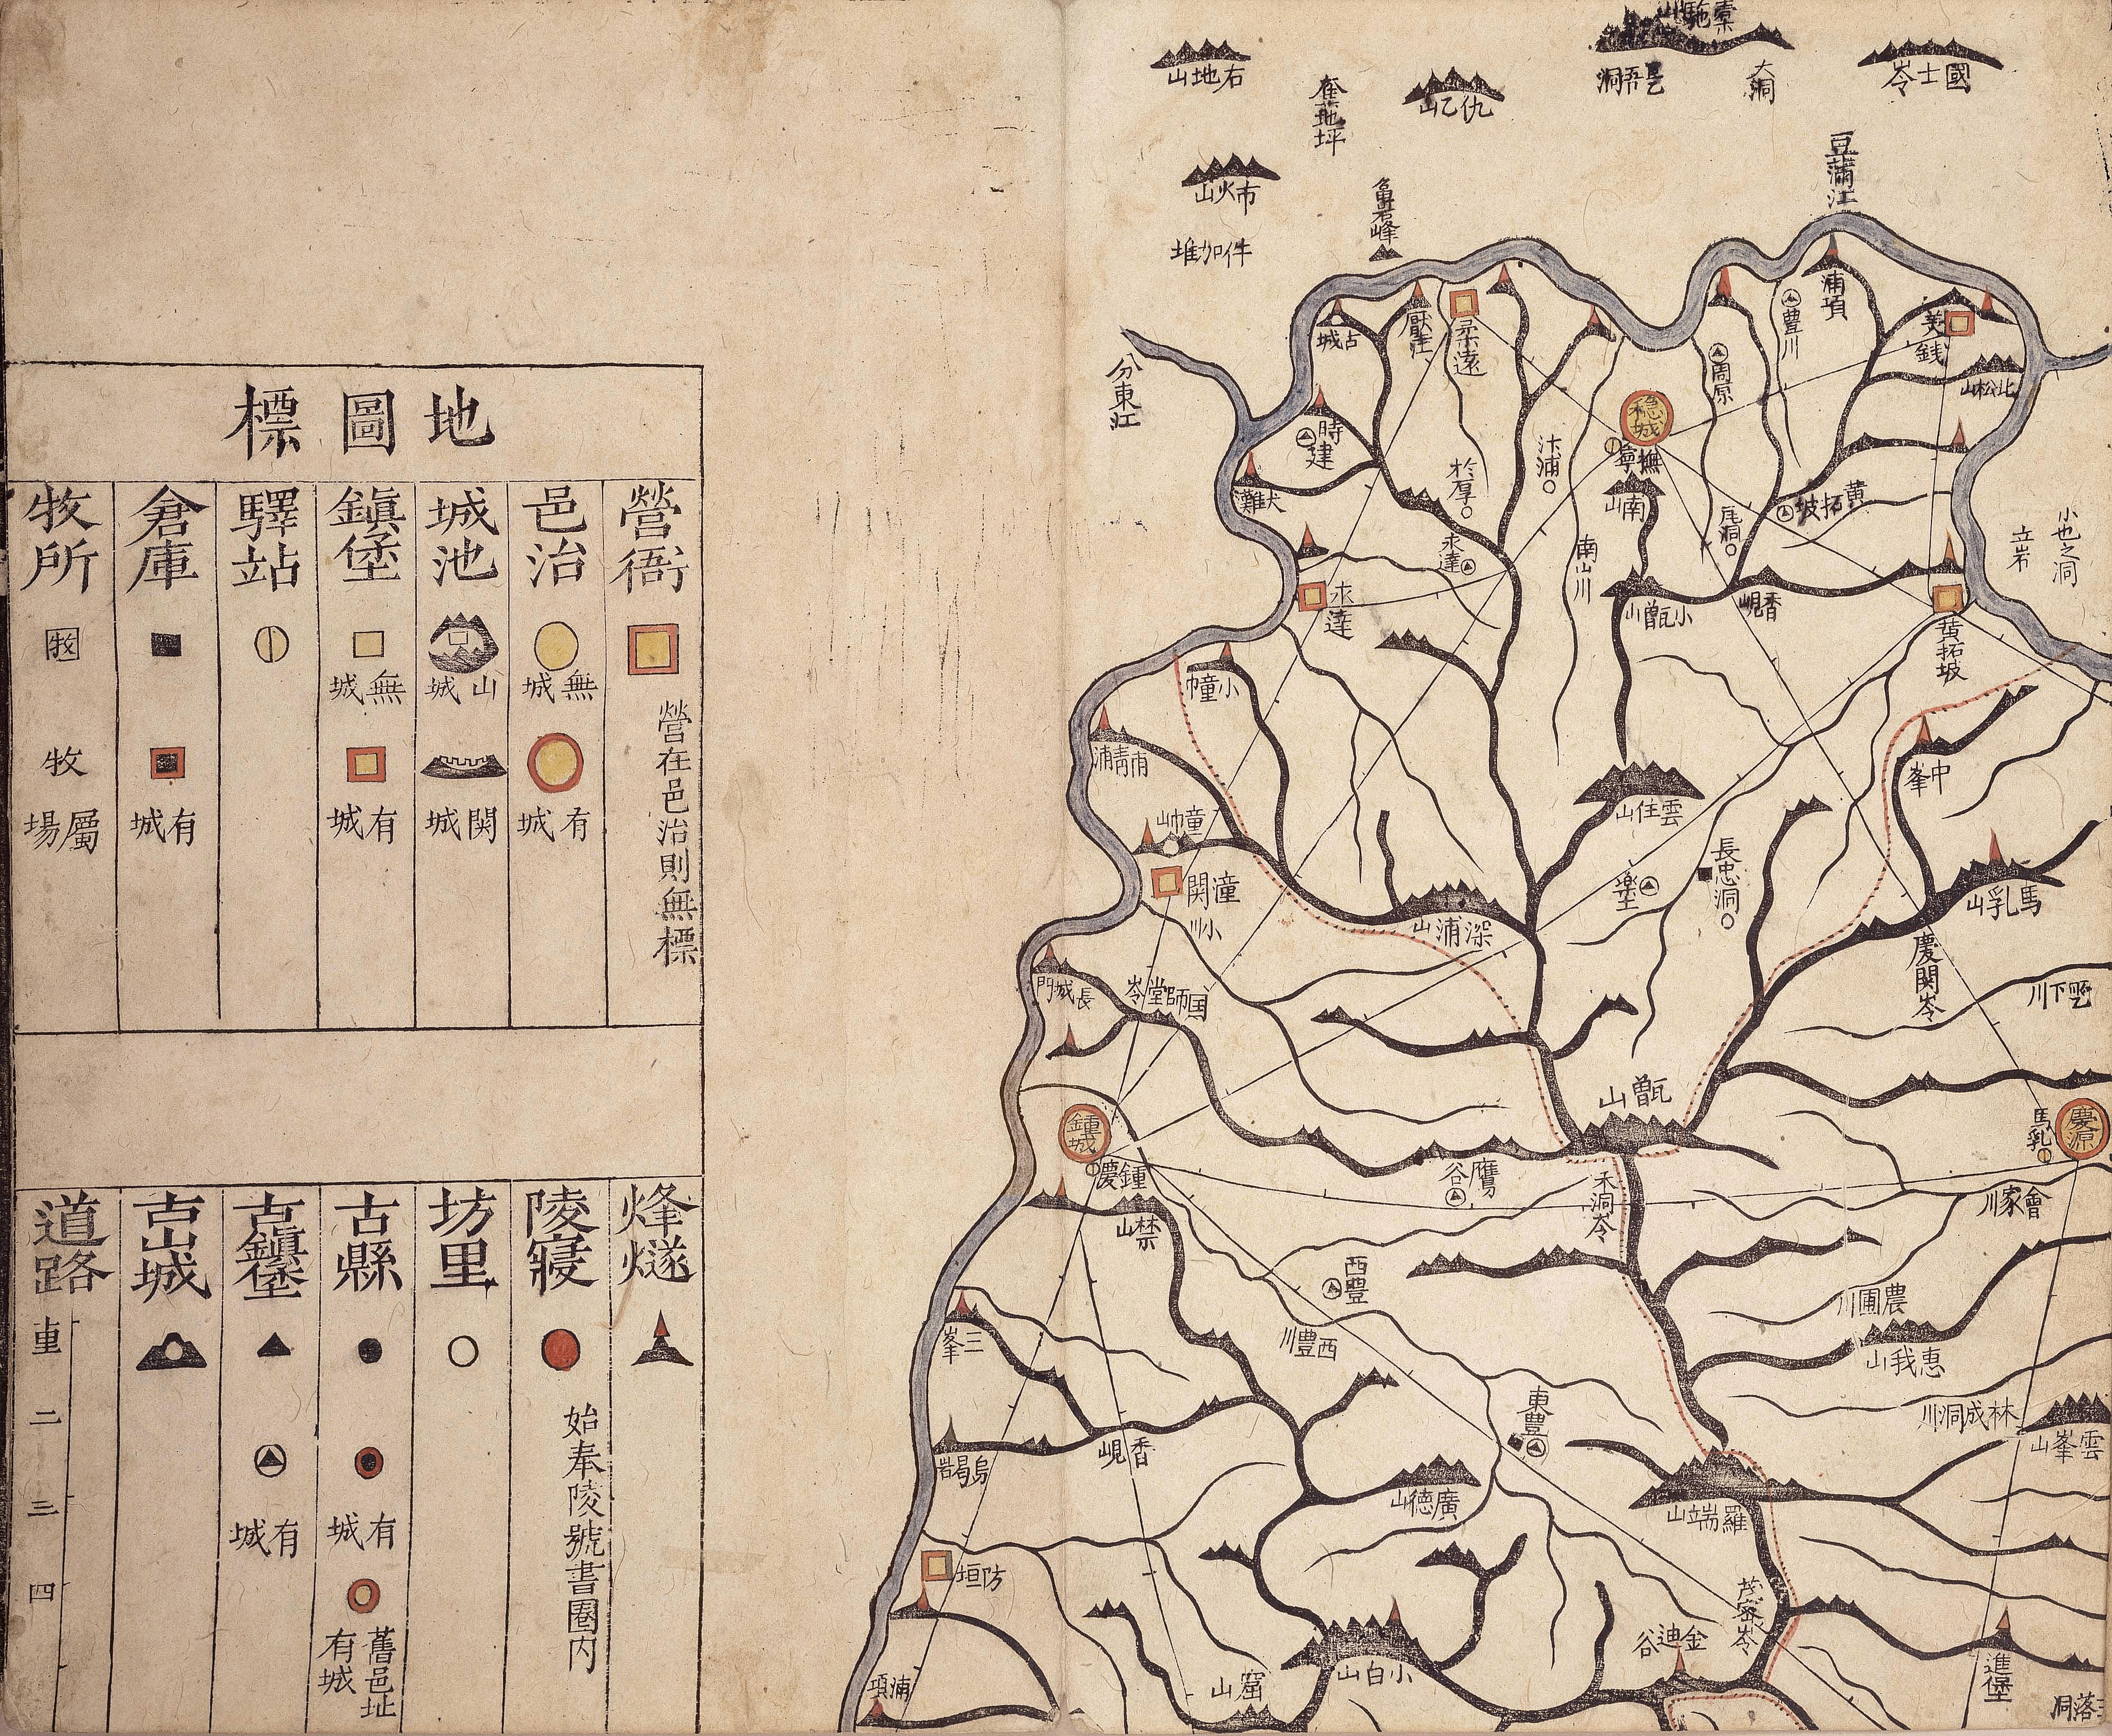 地圖標
營衙
營在邑治則無標
邑治
無城
有城
城池
山城
関城
鎭堡
無城
有城
驛站
倉庫
有城
牧所
牧
牧
屬場
烽燧
陵寢
始奉陵號書圈内
坊里
古縣
有城
舊邑址
有城
古鎭堡
有城
古山城
道路
重
二
三
四
國士岺
大洞
仇乙山
右地山
市火山
件加堆
豆滿江
分東江
浦項
豊川
美錢
北松山
周原
柔遠
厭注
古城
時建
犬灘
穩城
撫寧
南山
汴浦
於厚
永達
永達
南山川
尾洞
黃拓坡
黃拓坡
小也之洞
立岩
香峴
小甑山
小童巾
甫靑浦
童巾
潼関
雲住山
長忠洞
中峯
馬乳山
慶関岺
深浦山
長城門
国師堂岺
甑山
鍾城
鍾慶
禁山
鷹谷
禾洞岺
馬乳
慶源
會家川
西豊
西豊川
農圃川
惠我山
三峯
香峴
烏碣岩
東豊
林成洞川
雲峯山
廣德山
羅端山
防垣
茂密岺
金迪谷
小白山
窟山
浦項
進堡